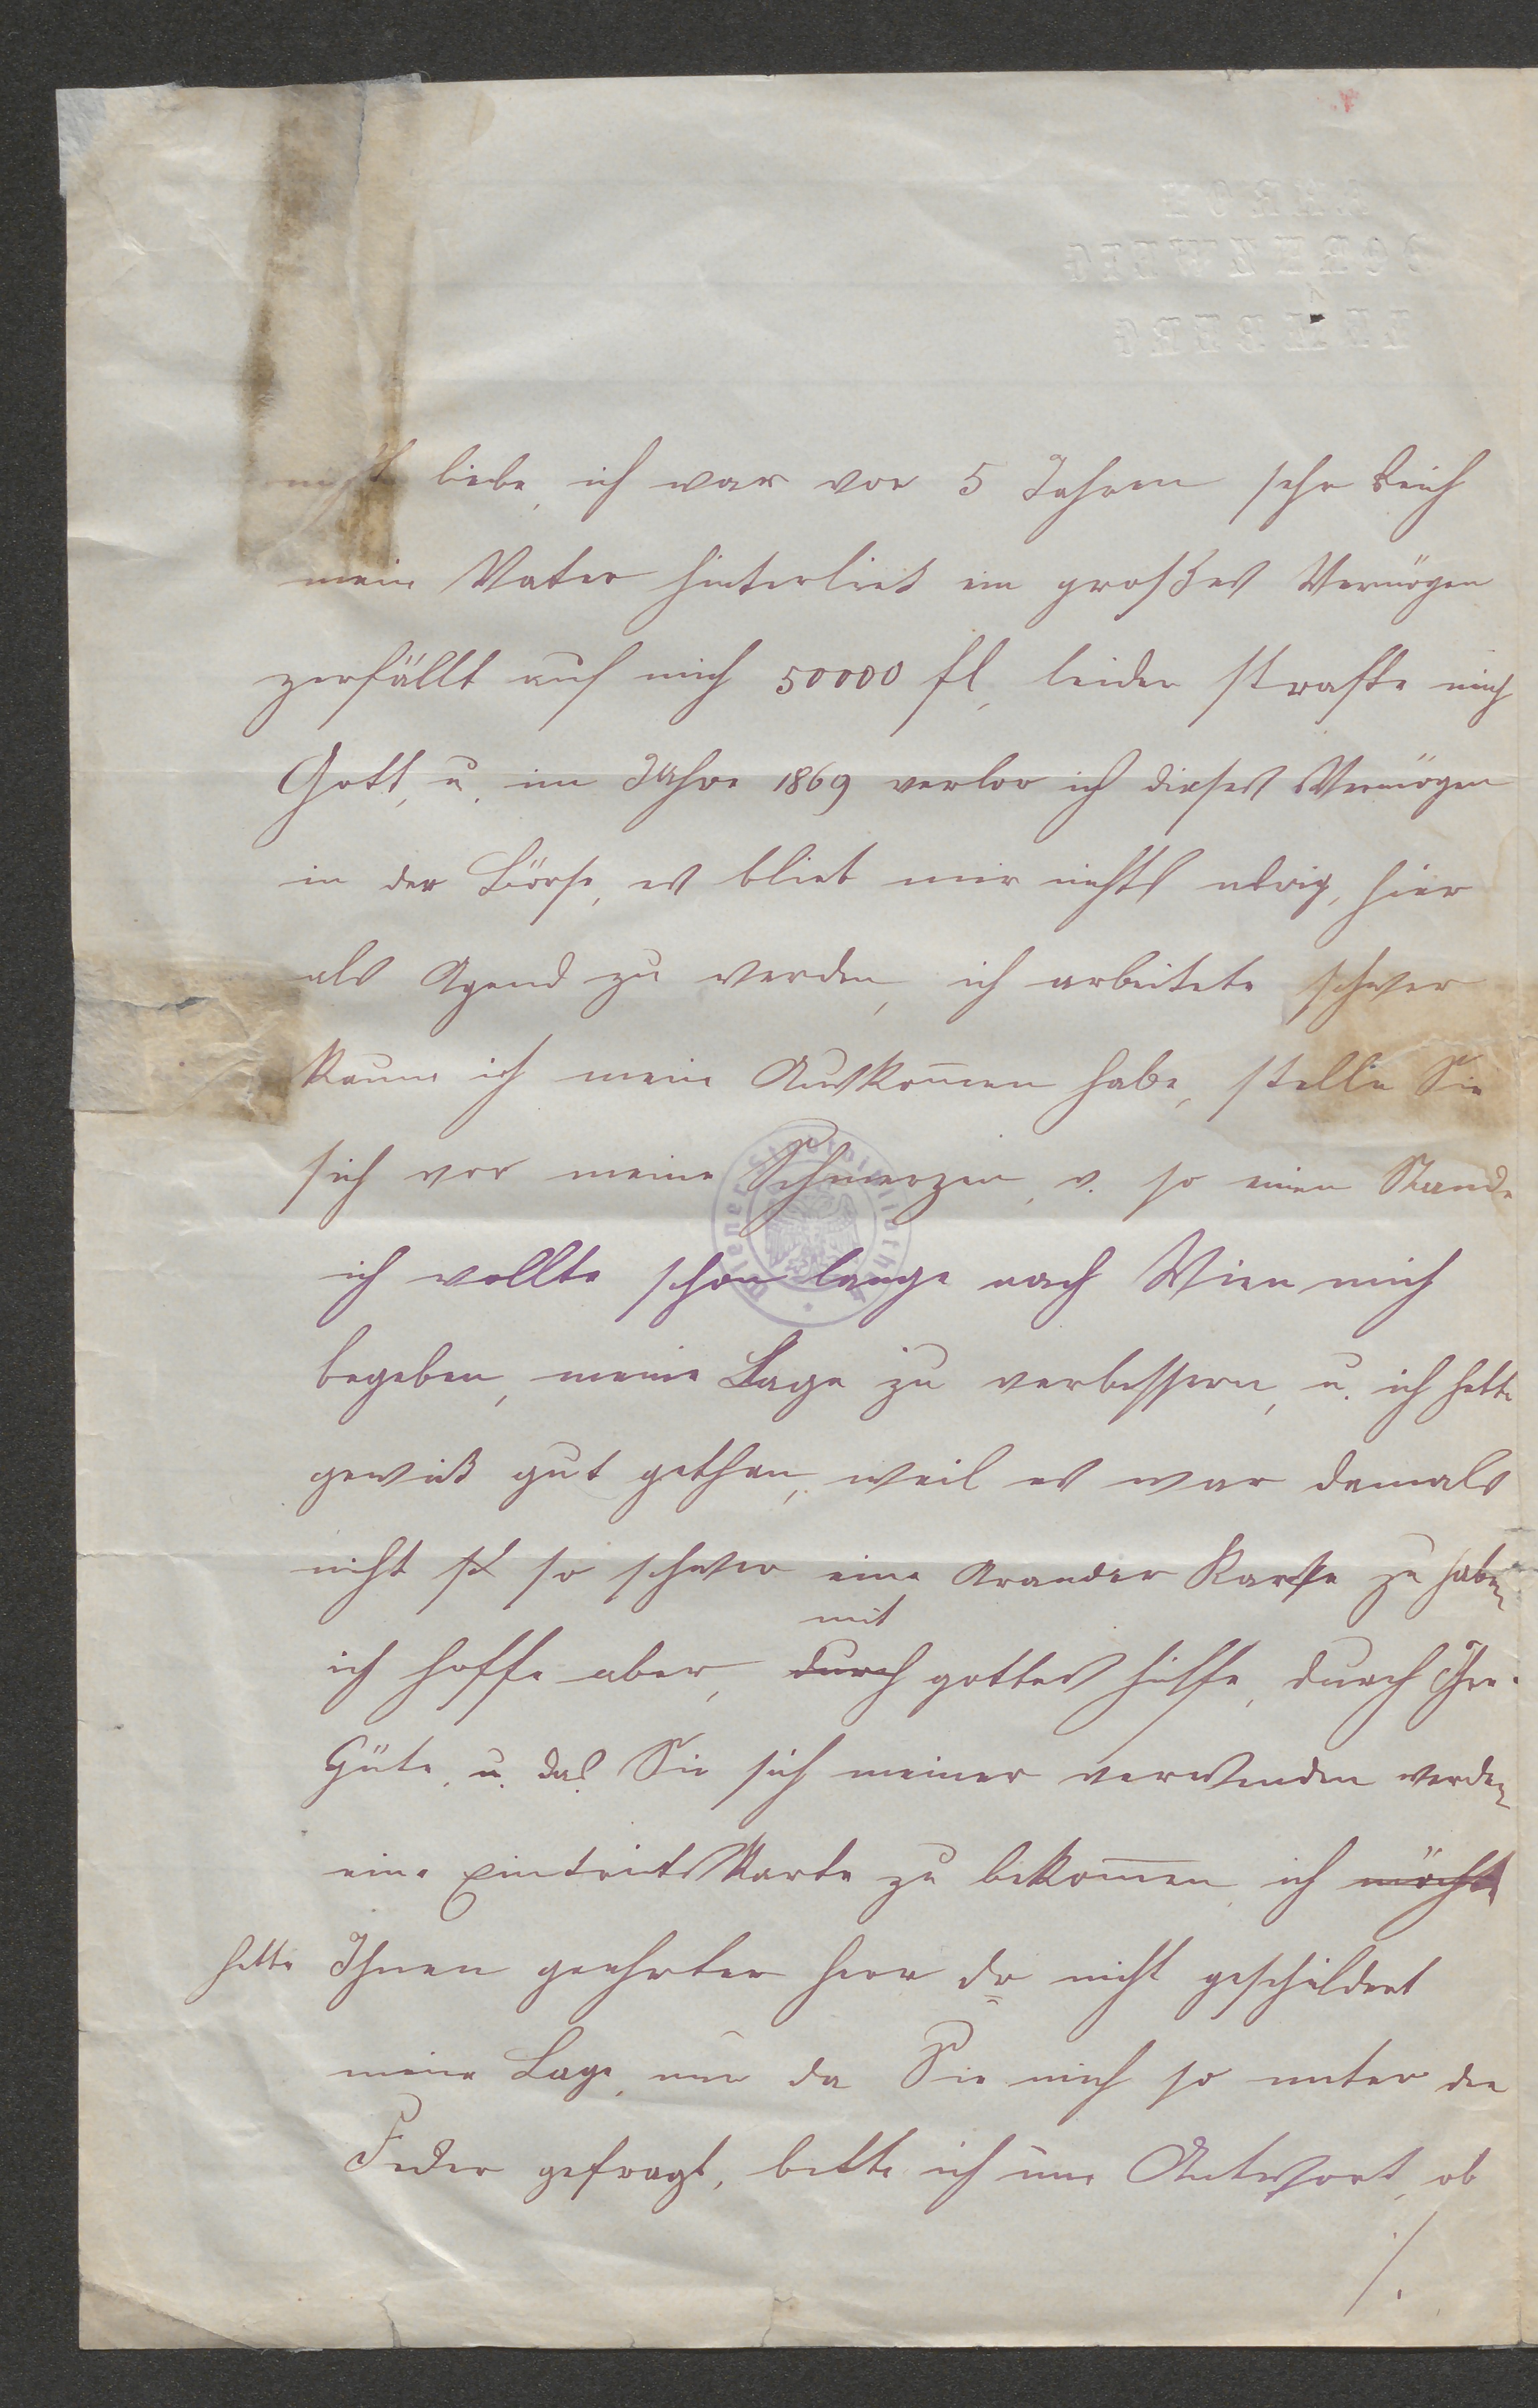 nicht liebe, ich war vor 5 Jahren sehr Reich
mein Vater hinterließ ein großes Vermögen
zerfällt auf mich 50000 fl, leider strafte mich
Gott, u. im Jahre 1869 verlor ich dieses Vermögen
in der Börse, es blieb mir nichts ubrig, hier
als Agend zu werden, ich arbeitete schwer
Kaum ich mein Auskom̄en habe, stelle Sie
sich vor meine Schmerzen, v. so einen Stande
ich wollte schon lange nach Wien mich
begeben, meine Lage zu verbessern, u. ich hette
gewiß gut gethan, weil es war damals
nicht so schwer eine Karte zu haben
ich hoffe aber, durch mit gottes hilfe, durch Ihre
Güte, u. daß Sie sich meiner verwenden werden
eine Eintritts Karte zu bekom̄en, ich möchte
hette Ihnen geehrter Herr Dr nicht geschildert
meine Lage, nur da Sie mich so unter der
Feder gefragt, bitte ich um Antwort, ob
./.
BARON
LEMBERG
Wiener Stadtbibliothek